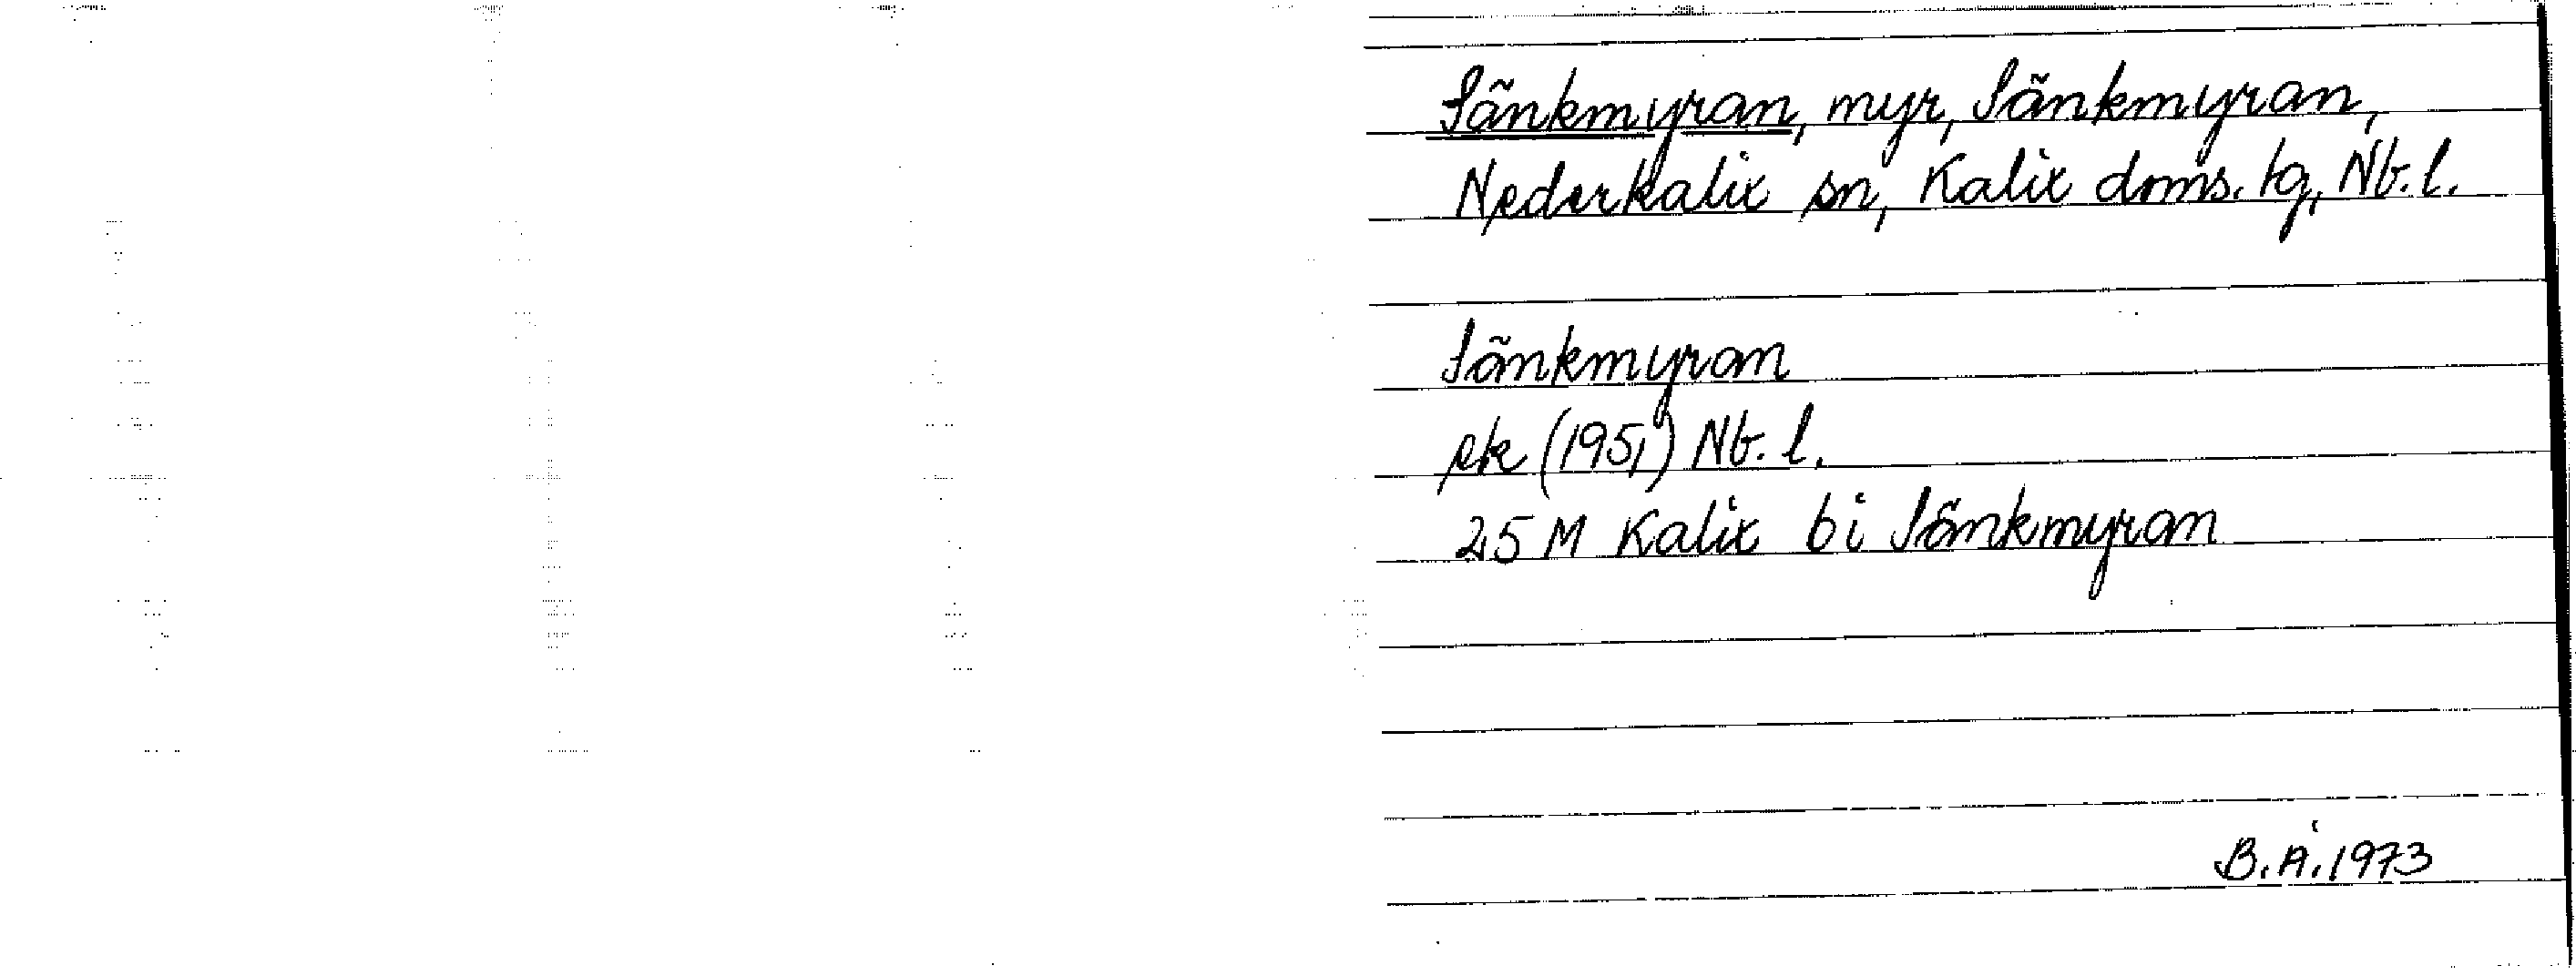 Sänkmyran, myr, Sänkmyran,
Nederkalix sn, Kalix doms. tg, Nb. l.
Sänkmyran
ek (1951) Nb. l.
25 M Kalix b i Sänkmyran
B.Å. 1973